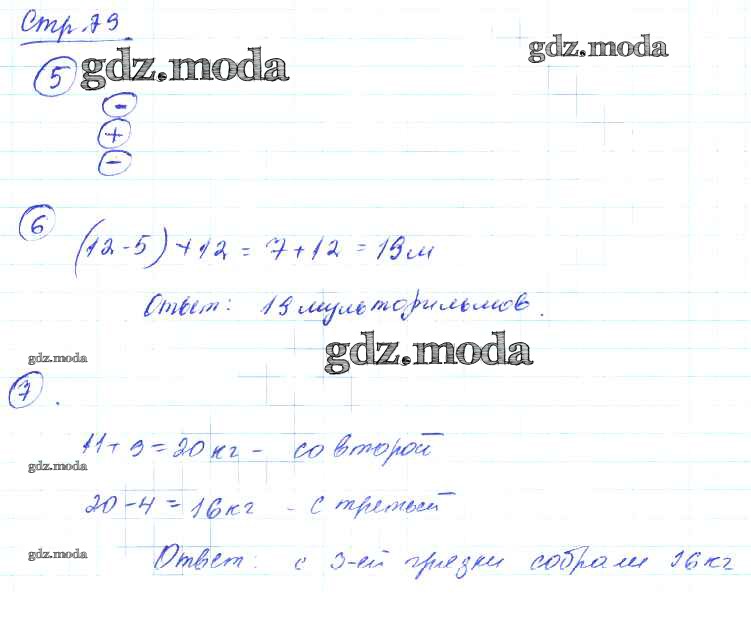 Стр. 79
gdz.moda
5 gdz.moda
-
+
-
6
(12-5)+12 = 7+12 = 19м
Ответ: 19 мультфильмов.
gdz.moda
gdz.moda
7.
11+9=20 кг - со второй
gdz.moda
20-4=16 кг - с третьей
gdz.moda
Ответ: с 3-ей грядки собрали 16 кг